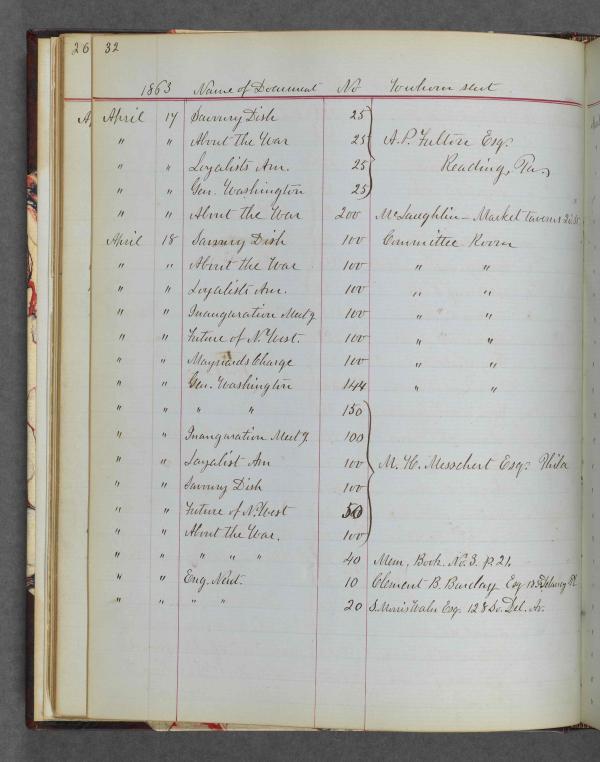 26 32
1863 Name of Document No To whom sent
April 17 Savoury Dish 25
" " About the War 25 A. P. Fulton Esq.
" " Loyalists Am. 25 Reading, Pa.
" " Gen. Washington 25
" " About the War 200 McLaughlin - Market taverns
April 18 Savoury Dish 100 Committee Room
" " About the War 100 " "
" " Loyalists Am. 100 " "
" " Inauguration Meet'g 100 " "
" " Future of N. West. 100 " "
" " Maynards Charge 100 " "
" " Gen. Washington 144 " "
" " " " 150
" " Inauguration Meet'g 100
" " Loyalist Am 100 M. H. Messchert Esq. Phila
" " Savoury Dish 100
" " Future of N. West 50
" " About the War. 100
" " " " " 40 Mem, Book. No. 3. p. 21.
" " Eng. Neut. 10 Clement B. Barclay Esq Delancy Pl
" " " " 20 S. Morris Waln Esq. 128 So. Del. Av.